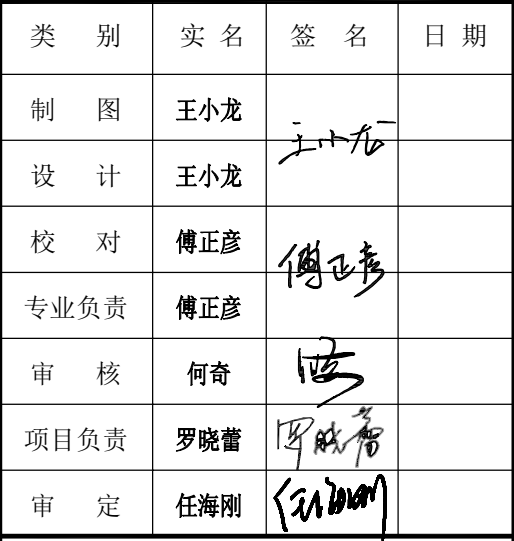 类 别 实 名 签 名 日 期
制 图 王小龙
王小龙
设 计 王小龙
校 对 傅正彦
傅正彦
专业负责 傅正彦
审 核 何奇
项目负责 罗晓蕾 罗晓蕾
审 定 任海刚 任海刚